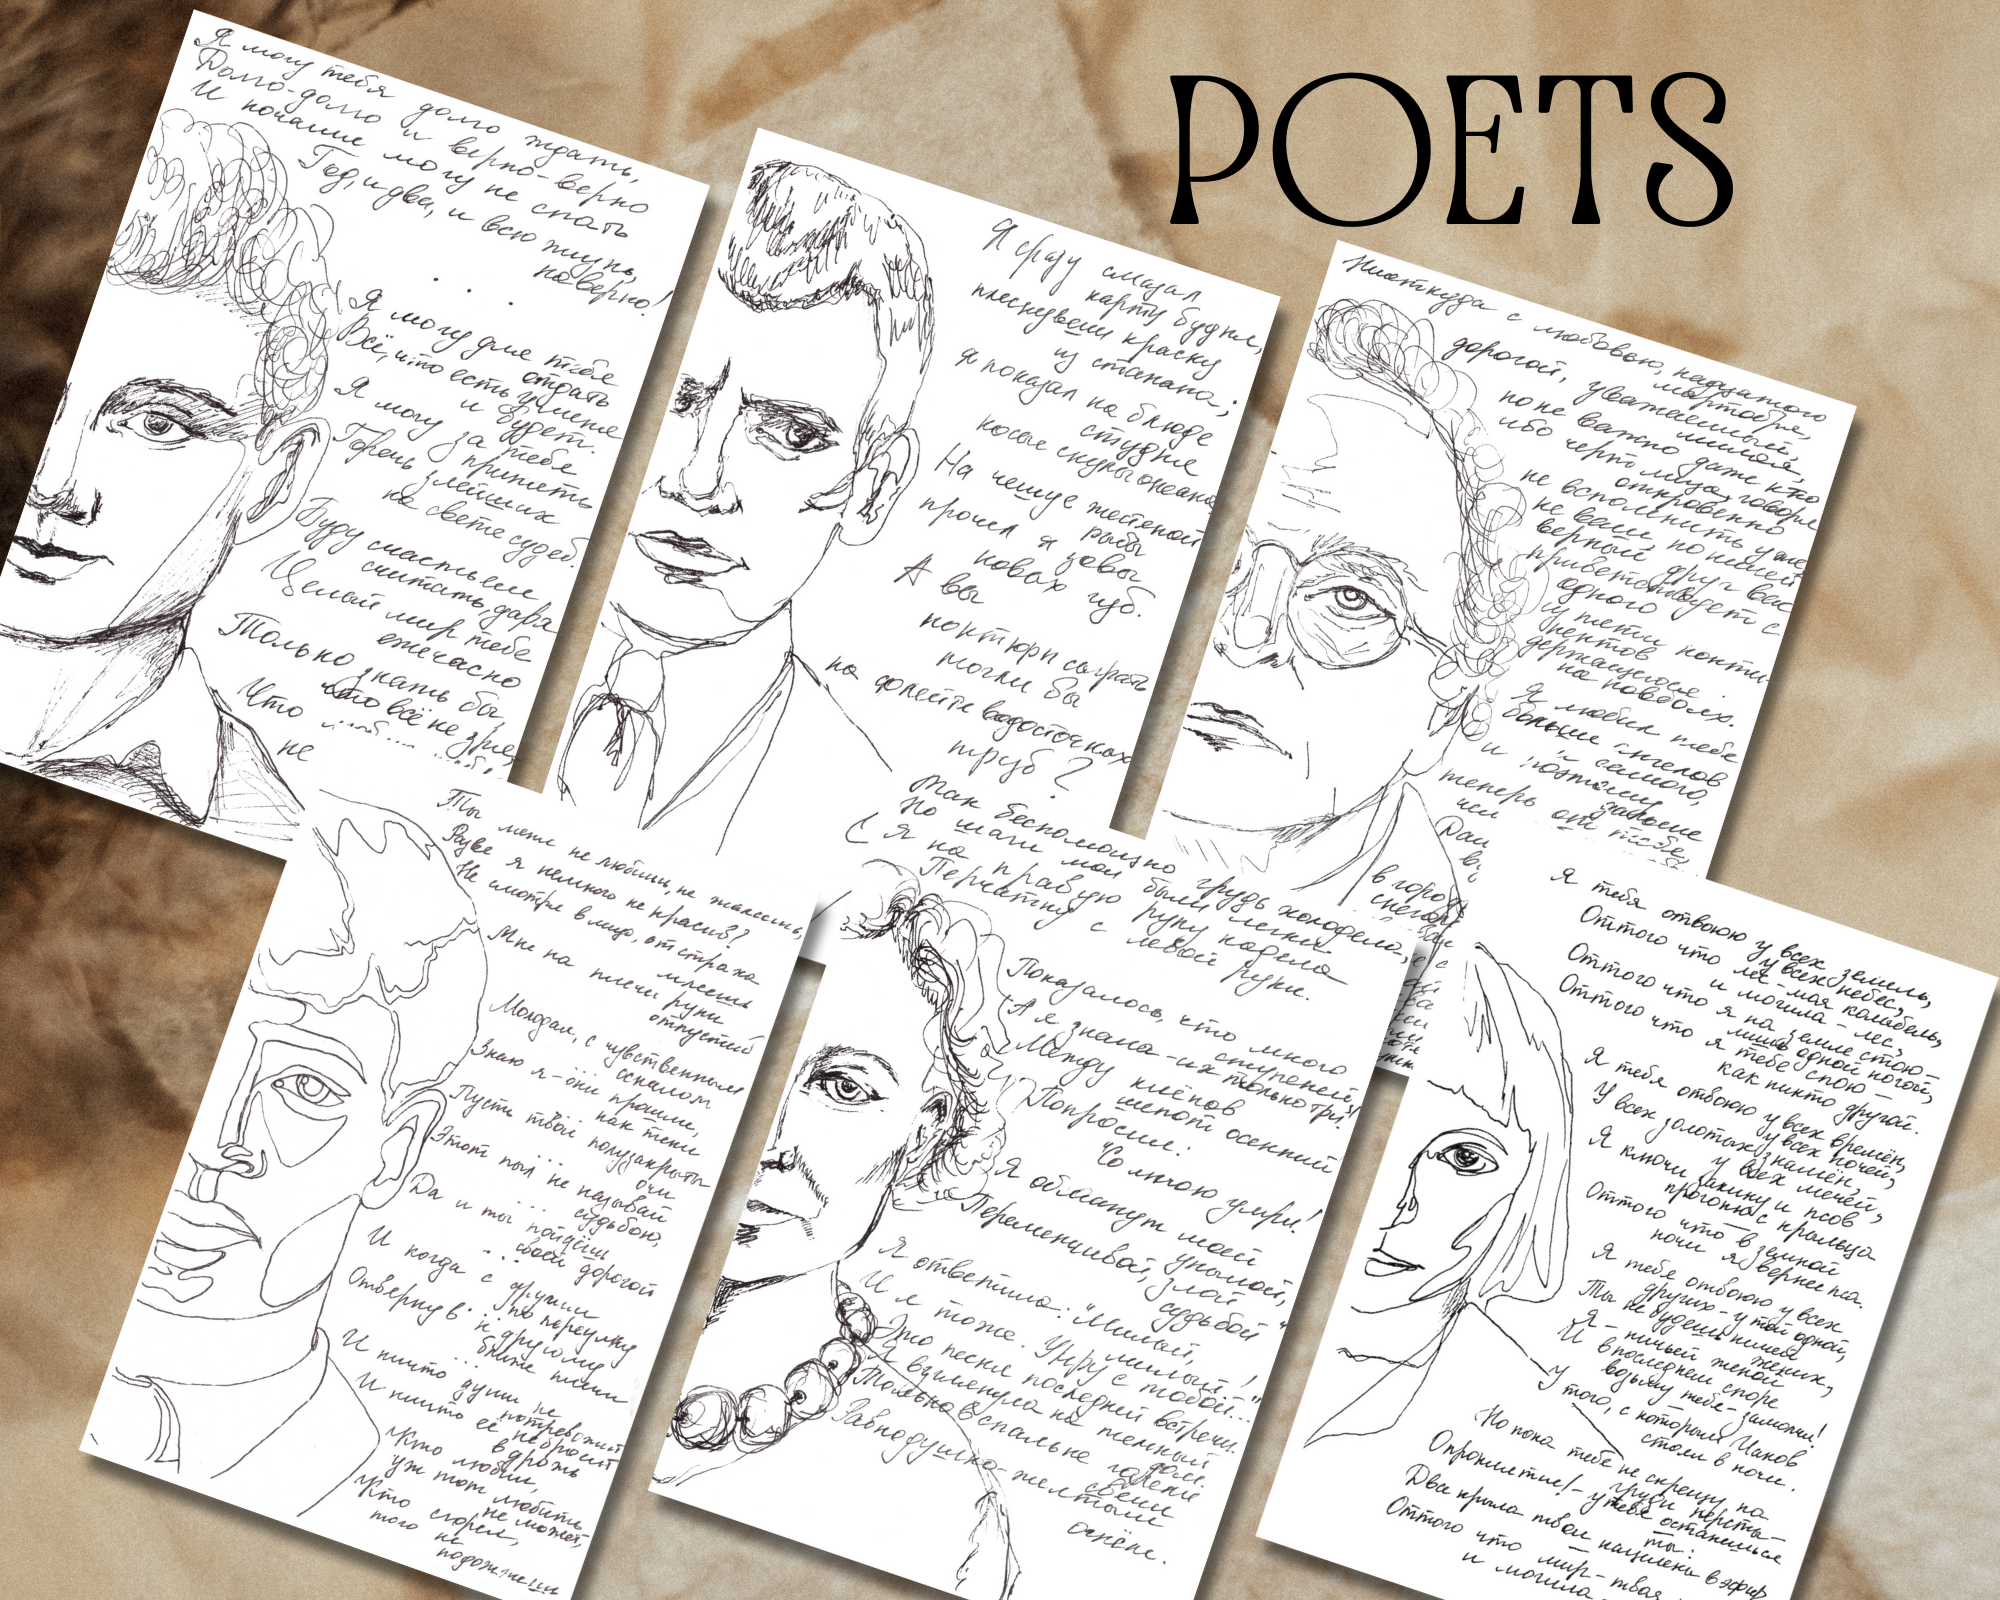 POETS
Я могу тебя долго ждать,
Долго-долго и верно-верно
И ночами могу не спать
Год, и два, и всю жизнь,
наверно!
Я могу для тебя
отдать
Всё, что есть у меня
и будет.
Я могу за тебя
принять
Горечь злейших
на свете судеб.
Буду счастьем
считать, даря
Целый мир тебе
ежечасно
Только знать бы,
что всё не зря,
Что
не
Я сразу смазал
карту будня,
плеснувши краску
из стакана;
я показал на блюде
студня
косые скулы океана
На чешуе жестяной
рыбы
прочел я зовы
новых губ.
А вы
ноктюрн сыграть
могли бы
на флейте водосточных
труб?
Ниоткуда с любовью, надцатого
мартобря,
дорогой, уважаемый,
милая,
но не важно даже кто
ибо черт лица, говоря
откровенно
не вспомнить уже
не ваш, но и ничей
верный друг вас
приветствует с
одного
из пяти конти-
нентов
держащегося
на ковбоях.
Я любил тебя
больше ангелов
и самого,
и поэтому
дальше
теперь от тебя,
Ты меня не любишь, не жалеешь,
Разве я немного не красив?
Не смотря в лицо, от страсти
млеешь
Мне на плечи руки
опустив
Молодая, с чувственным
оскалом
Знаю я - они прошли,
как тени
Пусть твои полузакрыты
очи
Этот пыл не называй
судьбою,
Да и ты пойдёшь
своей дорогой
И когда с другим
по переулку
И ничто души не
потревожит
И ничто её не бросит
в дрожь
Кто любил,
уж тот любить
не может,
Кто сгорел,
того не
подожжешь
Так беспомощно грудь холодела,
Но шаги мои были легки.
Я на правую руку надела
Перчатку с левой руки.
Показалось, что много
ступеней,
А я знала - их только три!
Между клёнов
шепот осенний
Попросил:
"Со мною умри!
Я обманут моей
унылой,
Переменчивой, злой
судьбой"
Я ответила: "Милый,
милый!
И я тоже. Умру с тобой..."
Это песня последней встречи.
Я взглянула на темный
дом.
Только в спальне горели
свечи
Равнодушно-желтым
огнём.
Я тебя отвоюю у всех земель,
у всех небес,
Оттого что лес - моя колыбель,
и могила - лес,
Оттого что я на земле стою -
лишь одной ногой,
Оттого что я тебе спою -
как никто другой.
Я тебя отвоюю у всех времён,
у всех ночей,
У всех золотых знамён,
у всех мечей,
Я ключи закину и псов
прогоню с крыльца
Оттого что в земной
ночи я вернее пса.
Я тебя отвоюю у всех
других - у той одной,
Ты не будешь ничей
жених,
Я - ничьей женой
И в последнем споре
возьму тебя - замолчи!
У того, с которым Иаков
стоял в ночи.
Но пока тебе не скрещу на
груди персты -
О проклятие! - у тебя остаёшься
ты:
Два крыла твои нацелены в эфир
Оттого что мир - твоя
и могила